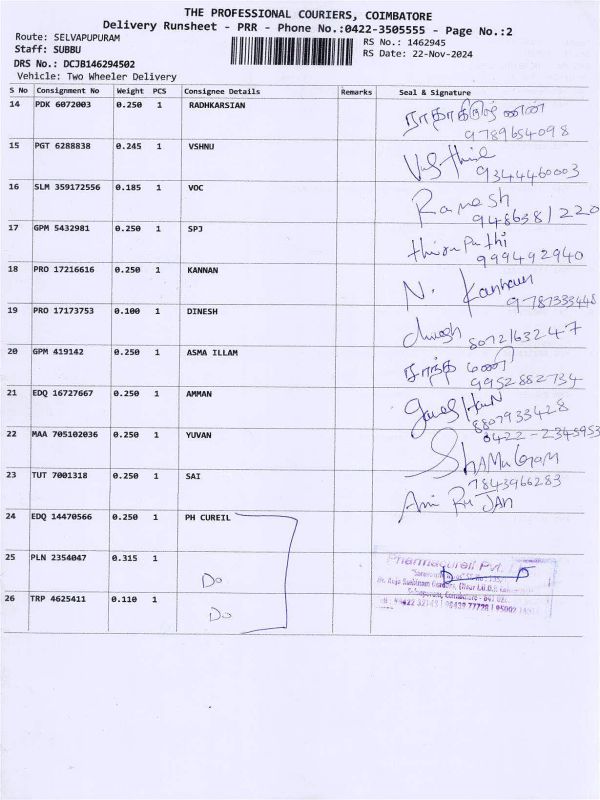 THE PROFESSIONAL COURIERS, COIMBATORE
Delivery Runsheet - PRR - Phone No.:0422-3505555 - Page No.:2
Route: SELVAPUPURAM RS No.: 1462945
Staff: SUBBU RS Date: 22-Nov-2024
DRS No.: DCJB146294502
Vehicle: Two Wheeler Delivery
S No Consignment No Weight PCS Consignee Details Remarks Seal & Signature
14 PDK 6072003 0.250 1 RADHKARSIAN
9789654098
15 PGT 6288838 0.245 1 VSHNU
9344460003
16 SLM 359172556 0.185 1 VOC Ramesh
9486381220
17 GPM 5432981 0.250 1 SPJ thirupathi
999492940
18 PRO 17216616 0.250 1 KANNAN N. Kannan
9787333448
19 PRO 17173753 0.100 1 DINESH dinesh 8072163247
20 GPM 419142 0.250 1 ASMA ILLAM சாந்தமணி
9952882734
21 EDQ 16727667 0.250 1 AMMAN
8807933428
22 MAA 705102036 0.250 1 YUVAN 0422-2345953
23 TUT 7001318 0.250 1 SAI 7843966283
24 EDQ 14470566 0.250 1 PH CUREIL
25 PLN 2354047 0.315 1 Do Pharmacureil Pvt.
26 TRP 4625411 0.110 1 Do Selvapuram, Coimbatore - 641 026.